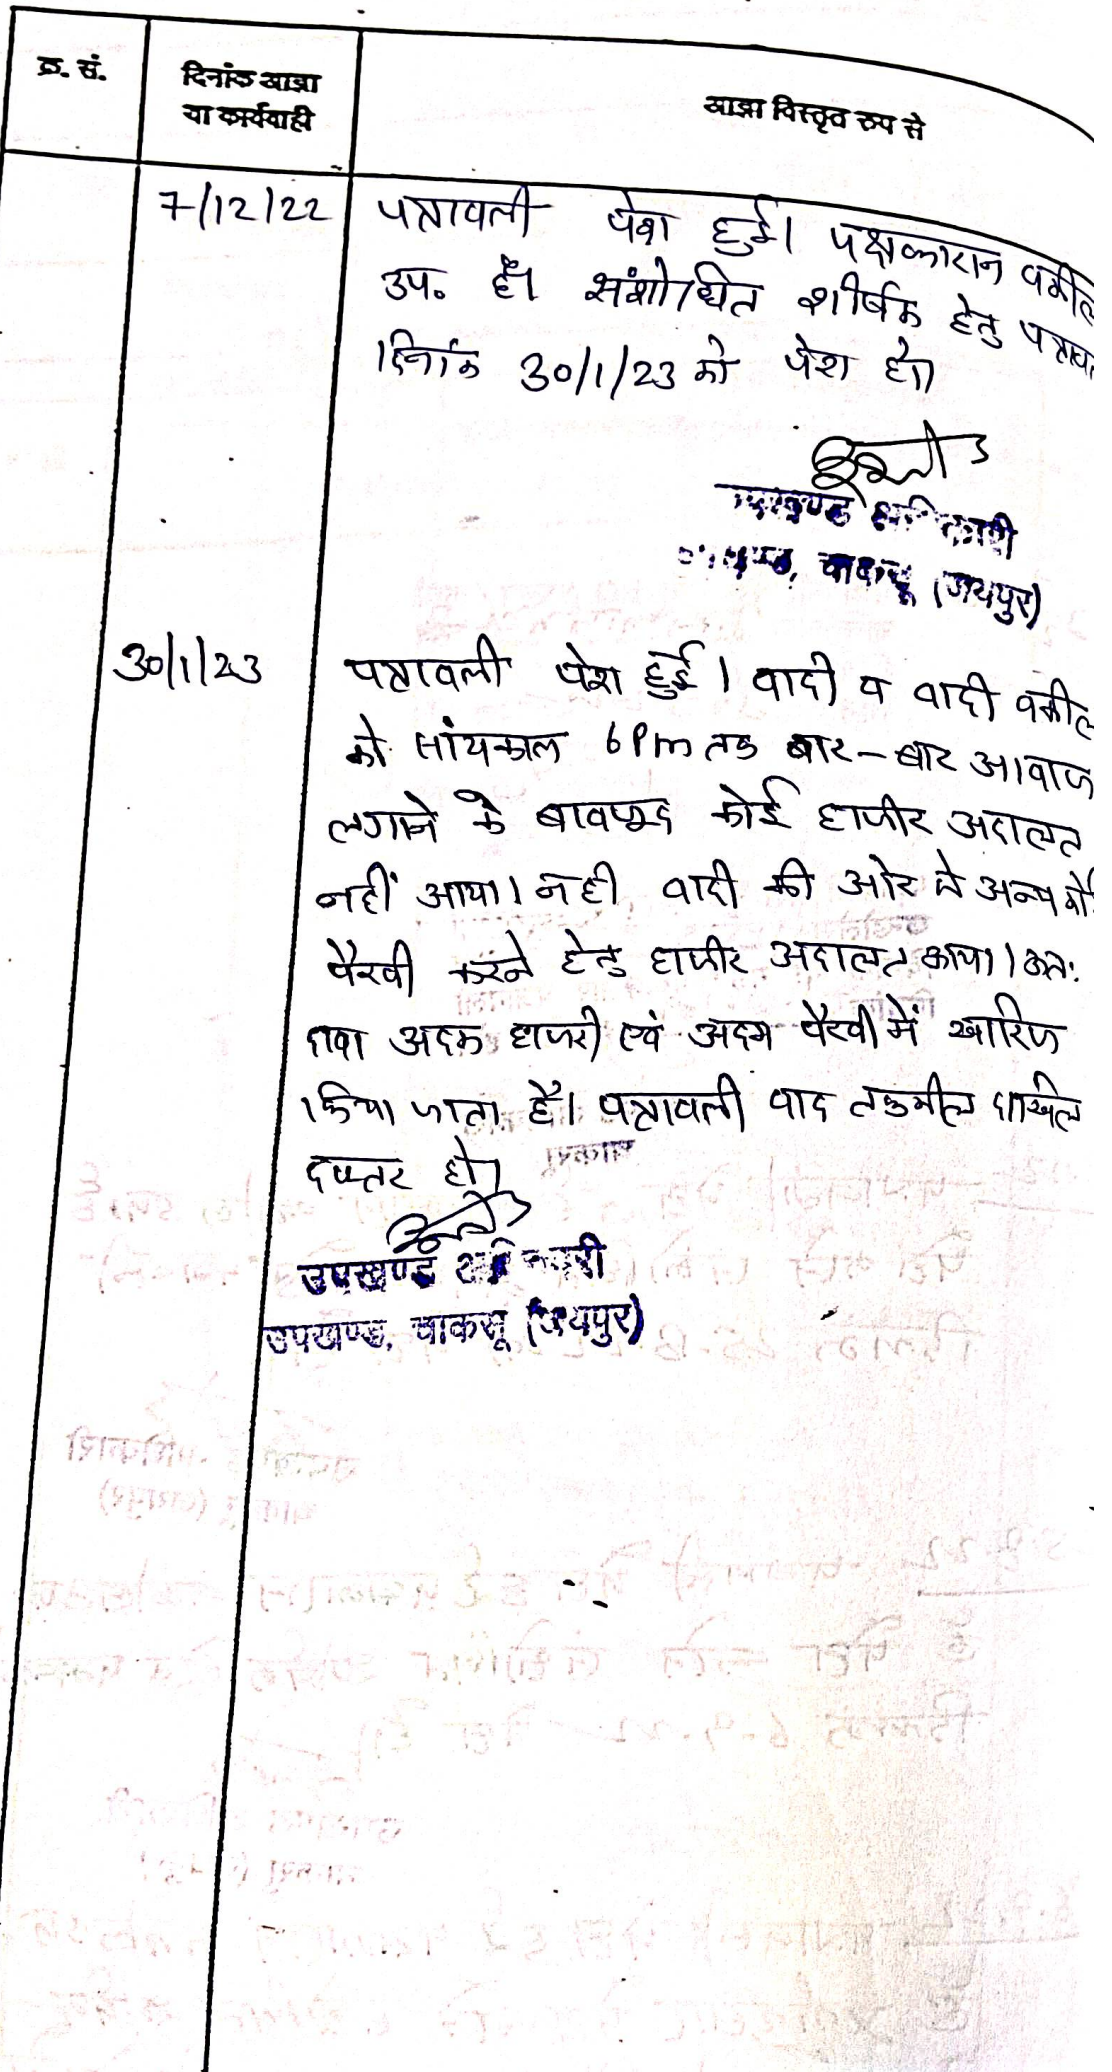 क्र. सं.
दिनांक आज्ञा
या कार्यवाही
आज्ञा विस्तृत रुप से
7/12/22
पत्रावली पेश हुई। पक्षकारान वकील
उप. है। संशोधित शीर्षक हेतु
दिनांक 30/1/23 को पेश हो।
उपखण्ड अधिकारी
उपखण्ड, चाकसू (जयपुर)
30/1/23
पत्रावली पेश हुई। वादी व वादी वकील
को सांयकाल 6 Pm तक बार-बार आवाज
लगाने के बावजूद कोई हाजीर अदालत
नहीं आया। न ही वादी की ओर से अन्य
पैरवी करने हेतु हाजीर अदालत आया। अतः
दावा अदम हाजरी एवं अदम पैरवी में खारिज
किया जाता है। पत्रावली वाद तकमील दाखिल
दफ्तर हो।
उपखण्ड अधिकारी
उपखण्ड, चाकसू (जयपुर)